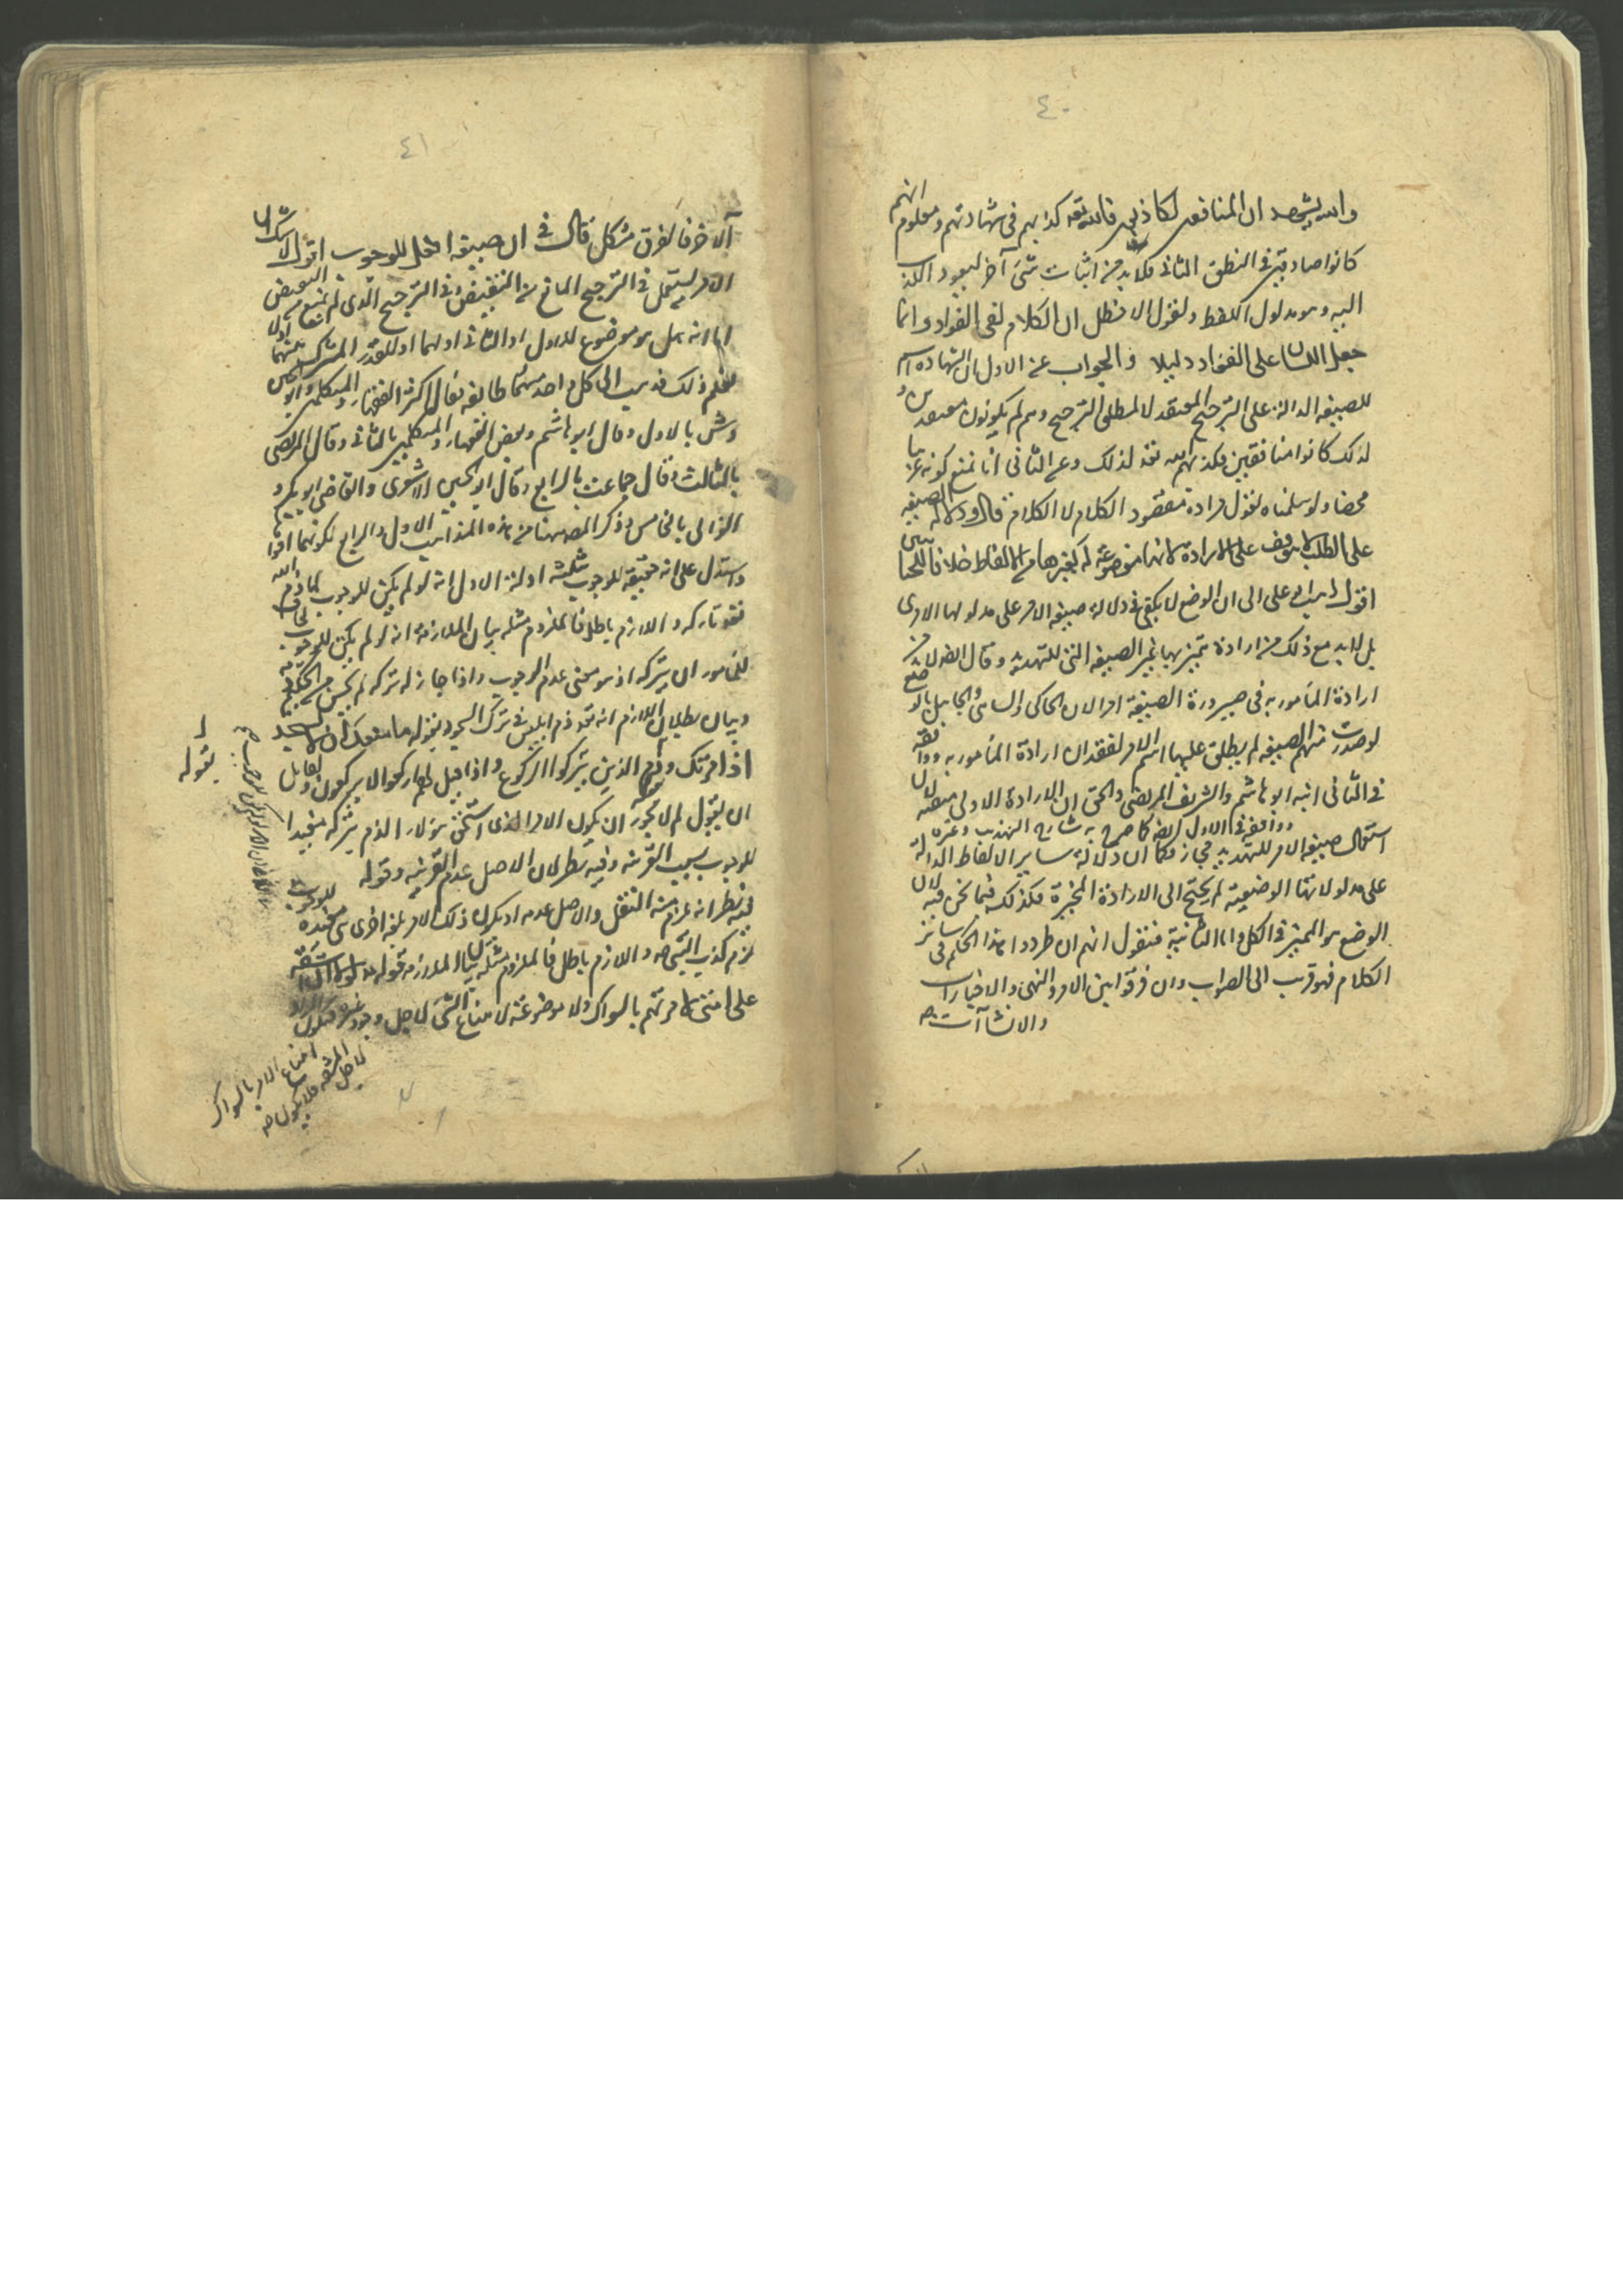 ٤٠
والله يشهد ان المنافقين لكاذبون فالله تعه كذبهم فى شهادتهم ومعلوم انهم
كانوا صادقين فى النطق اللسانى فلا بد من اثبات شئ آخر ليعود الكذب
اليه وهو مدلول اللفظ ولقول الاخطل ان الكلام لفى الفؤاد وانما
جعل اللسان على الفؤاد دليلا والجواب عن الاول ان الشهادة اسم
للصيغة الدالة على الترجيح المعتقد لا لمطلق الترجيح وهم لم يكونوا معتقدين
لذلك كانوا منافقين فكذبهم الله تعه لذلك وعن الثانى انا نمنع كونه عربيا
محضا ولو سلمناه لقول مراده مقصود الكلام لا الكلام قال ودلالة الصيغة
على الطلب لا يتوقف على الارادة لانها موضوعة له كغيرها من الالفاظ خلافا للجبائيين
اقول ذهب ابو على الى ان الوضع لا يكفى فى دلالة صيغة الامر على مدلولها الامرى
بل لا بد مع ذلك من ارادة تميزها عن الصيغة التى للتهديد وقال ايضا لا بد من
ارادة المأمور به فى صيرورة الصيغة امرا لان الحاكى والساهى والجاهل بالوضع
لو صدرت منهم الصيغة لم يطلق عليها اسم الامر لفقدان ارادة المأمور به ووافقه
فى الثانى ابنه ابو هاشم والشريف المرتضى والحق ان الارادة الاولى منفية لان
ووافقه فى الاول ايضا كما صرح به شارح التهذيب وغيره
استعمال صيغة الامر للتهديد مجاز فكما ان دلالة ساير الالفاظ الدالة
على مدلولاتها الوضعية لم يحتج الى الارادة المخبرة فكذلك فيما نحن فيه لان
الوضع هو المميز فى الكل واما الثانية فنقول انهم ان طردوا هذا الحكم فى ساير
الكلام فهو قريب الى الصواب وان فرقوا بين الامر والنهى والاخبارات
والانشاآت
٤١
الاخر فالفرق مشكل قال فى ان صيغة افعل للوجوب اقول لا شك ان
الامر يستعمل فى الترجيح المانع من النقيض وفى الترجيح الذى لم يمنع من النقيض
اما انه هل هو موضوع للاول او الثانى او لهما او للقدر المشترك بينهما او لا
نعلم ذلك فذهب الى كل واحد منهما طائفة فقال اكثر الفقهاء والمتكلمين وابو الحسن
بالاول وقال ابو هاشم وبعض الفقهاء والمتكلمين بالثانى وقال المرتضى
بالثالث وقال جماعة بالرابع وقال ابو الحسن الاشعرى والقاضى ابو بكر و
الغزالى بالخامس وذكر المصه ههنا من هذه المذاهب الاول والرابع لكونهما اقواها
واستدل على انه حقيقة للوجوب بثلثة ادلة الاول انه لو لم يكن للوجوب لما ذم الله
تعه تاركه واللازم باطل فالملزوم مثله بيان الملازمة انه لو لم يكن للوجوب لجاز
للمأمور ان يتركه اذ هو معنى عدم الوجوب واذا جاز له تركه لم يحسن من الحكيم ذمه
وبيان بطلان اللازم انه تعه ذم ابليس فى ترك السجود بقوله ما منعك ان لا تسجد
اذ امرتك وذم الذين يتركوا الركوع بقوله واذا قيل لهم اركعوا لا يركعون ولقايل
ان يقول لم لا يجوز ان يكون الامر الذى استحق هؤلاء الذم بتركه مفيدا
للوجوب بسبب القرينة وفيه نظر لان الاصل عدم القرينة وقوله
فيه نظر انه يلزم منه النقل والاصل عدمه او يكون ذلك الامر بلغة اخرى هى مفيدة للوجوب
يلزم كذب النبى صه واللازم باطل فالملزوم مثله بيان الملازمة قوله صه لولا ان اشق
على امتى لامرتهم بالسواك ولا موضوعة لامتناع الشئ لاجل وجود غيره فيكون المراد
امتناع الامر بالسواك
لاجل المشقة فلا يكون صه
بقوله